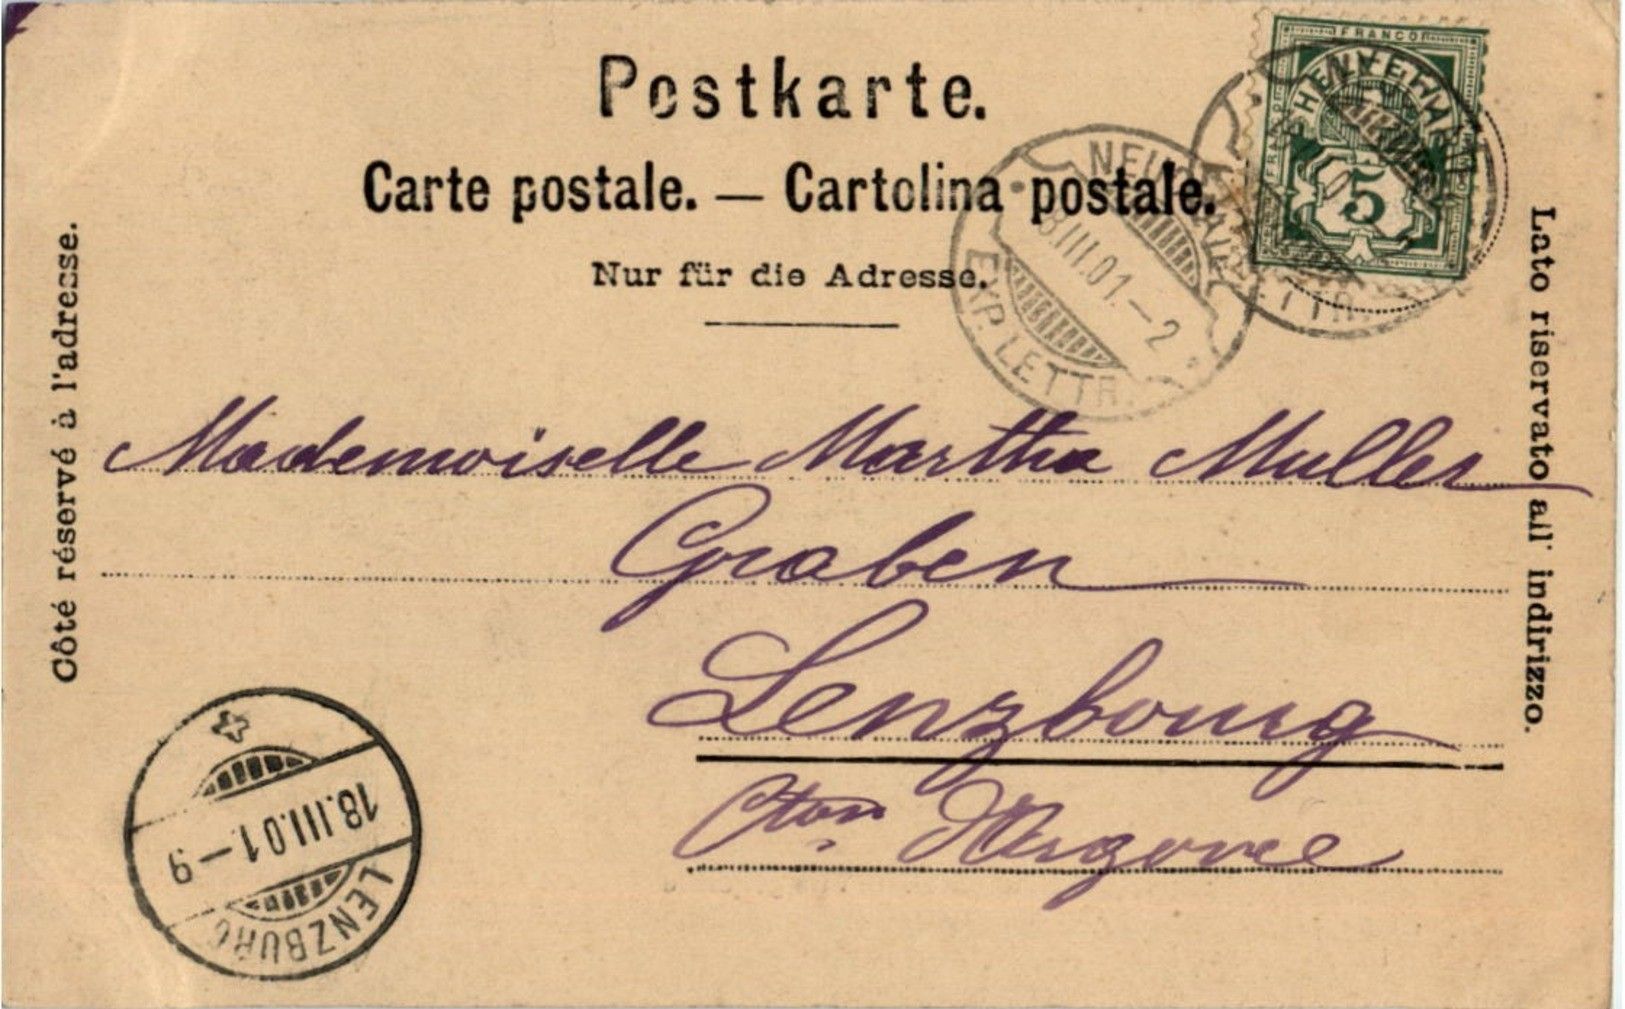 Postkarte.
Carte postale. — Cartolina postale.
Nur für die Adresse.
Côté réservé à l'adresse.
Lato riservato all' indirizzo.
FRANCO
FRANCO
HELVETIA
5
EXP. LETTR.
18.III.01.–2
LETTR.
Mademoiselle Martha Muller
Graben
Lenzbourg
Cton d'Argovie
18.III.01–9
LENZBURG